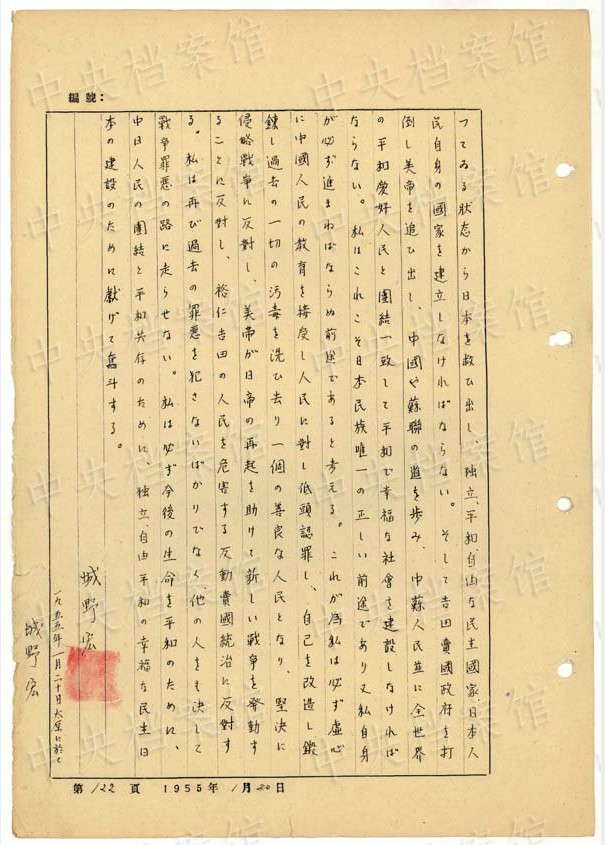 編號：
つてゐる狀态から日本を救ひ出し、独立、平和、自由な民主國家、日本人
民自身の國家を建立しなければならない。そして吉田賣國政府を打
倒し美帝を追ひ出し、中國や蘇聯の道を歩み、中蘇人民並に全世界
の平和愛好人民と團結一致して平和で幸福な社會を建設しなければ
ならない。私はこれこそ日本民族唯一の正しい前途であり又私自身
が必ず進まねばならぬ前途であると考える。これが為私は必ず虚心
に中國人民の教育を接受し人民に対し低頭認罪し、自己を改造し鍛
錬し過去の一切の汚毒を洗ひ去り一個の善良な人民となり、堅决に
侵略戰爭に反対し、美帝が日帝の再起を助けて新しい戰爭を発動す
ることに反対し、裕仁吉田の人民を危害する反動賣國統治に反對す
る。私は再び過去の罪悪を犯さないばかりでなく、他の人をも決して
戰爭罪悪の路に走らせない。私は必ず今後の生命を平和のために、
中日人民の團結と平和共存のために、独立、自由、平和の幸福な民主日
本の建設のために献げて奮斗する。
城野宏
一九五五年一月二十日太原に於て
城野宏
第122頁 1955年1月20日
中央档案馆